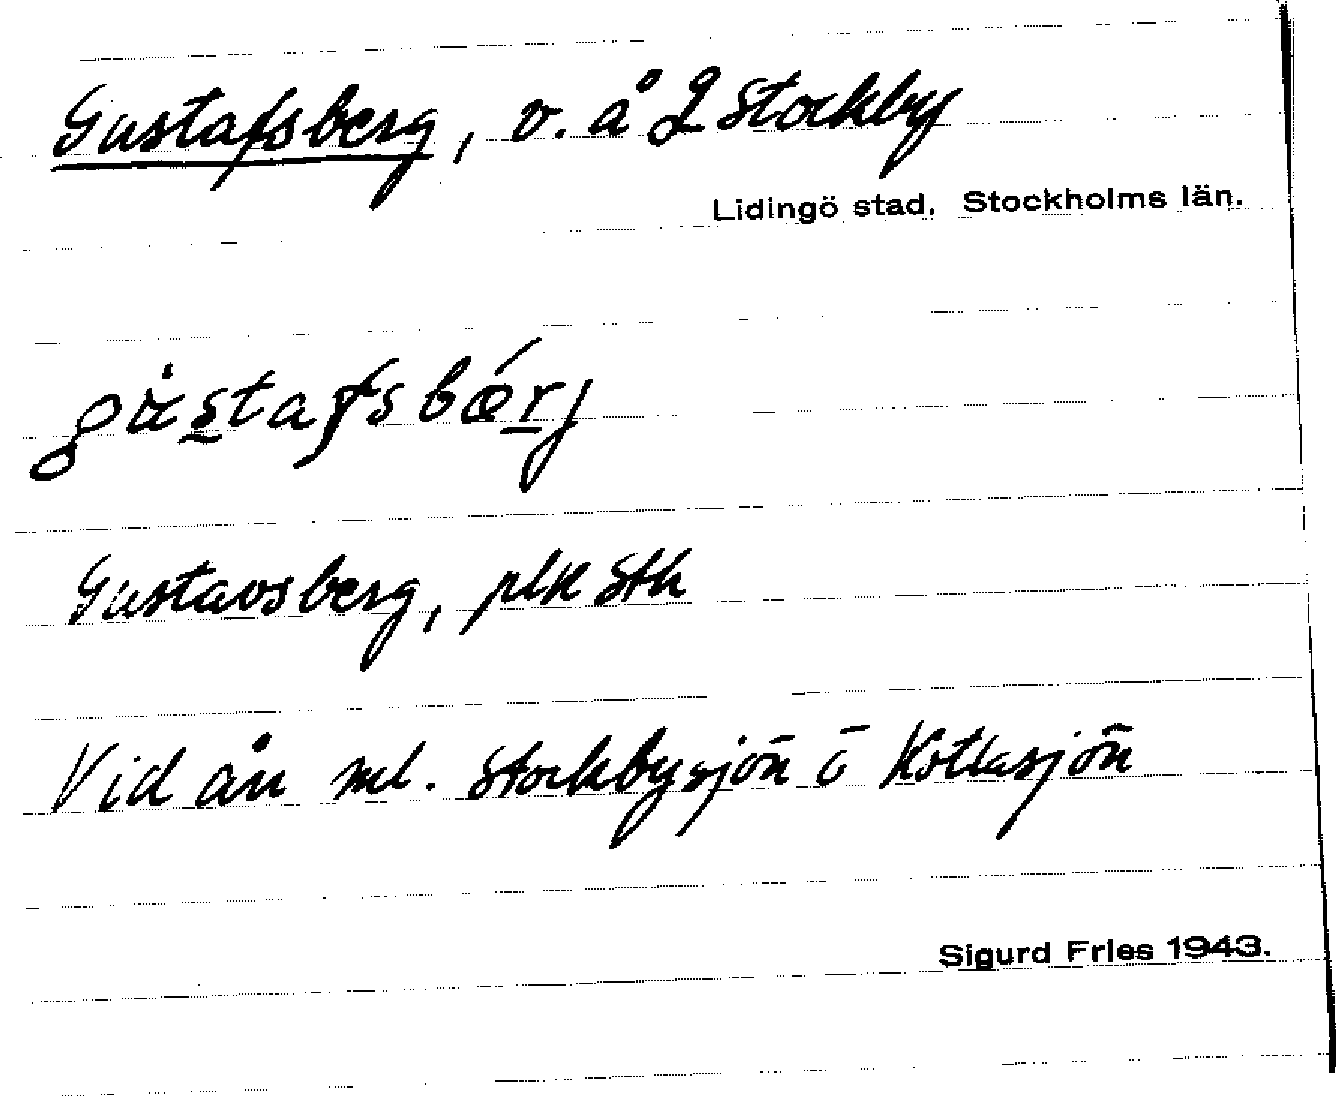 Gustafsberg, v. å 2 Stockby
Lidingö stad, Stockholms län.
gùstafsbǽrj
Gustavsberg, plk Sth
Vid ån ml. Stockbysjön o Kottlasjön
Sigurd Fries 1943.